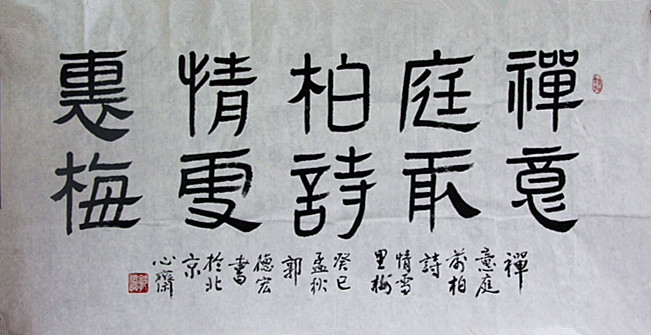 禪意
庭前
柏詩
情雪
裏梅
禪
意庭
前柏
詩
情雪
里梅
癸巳
孟秋
郭
德宏
書
於北
京
心齋